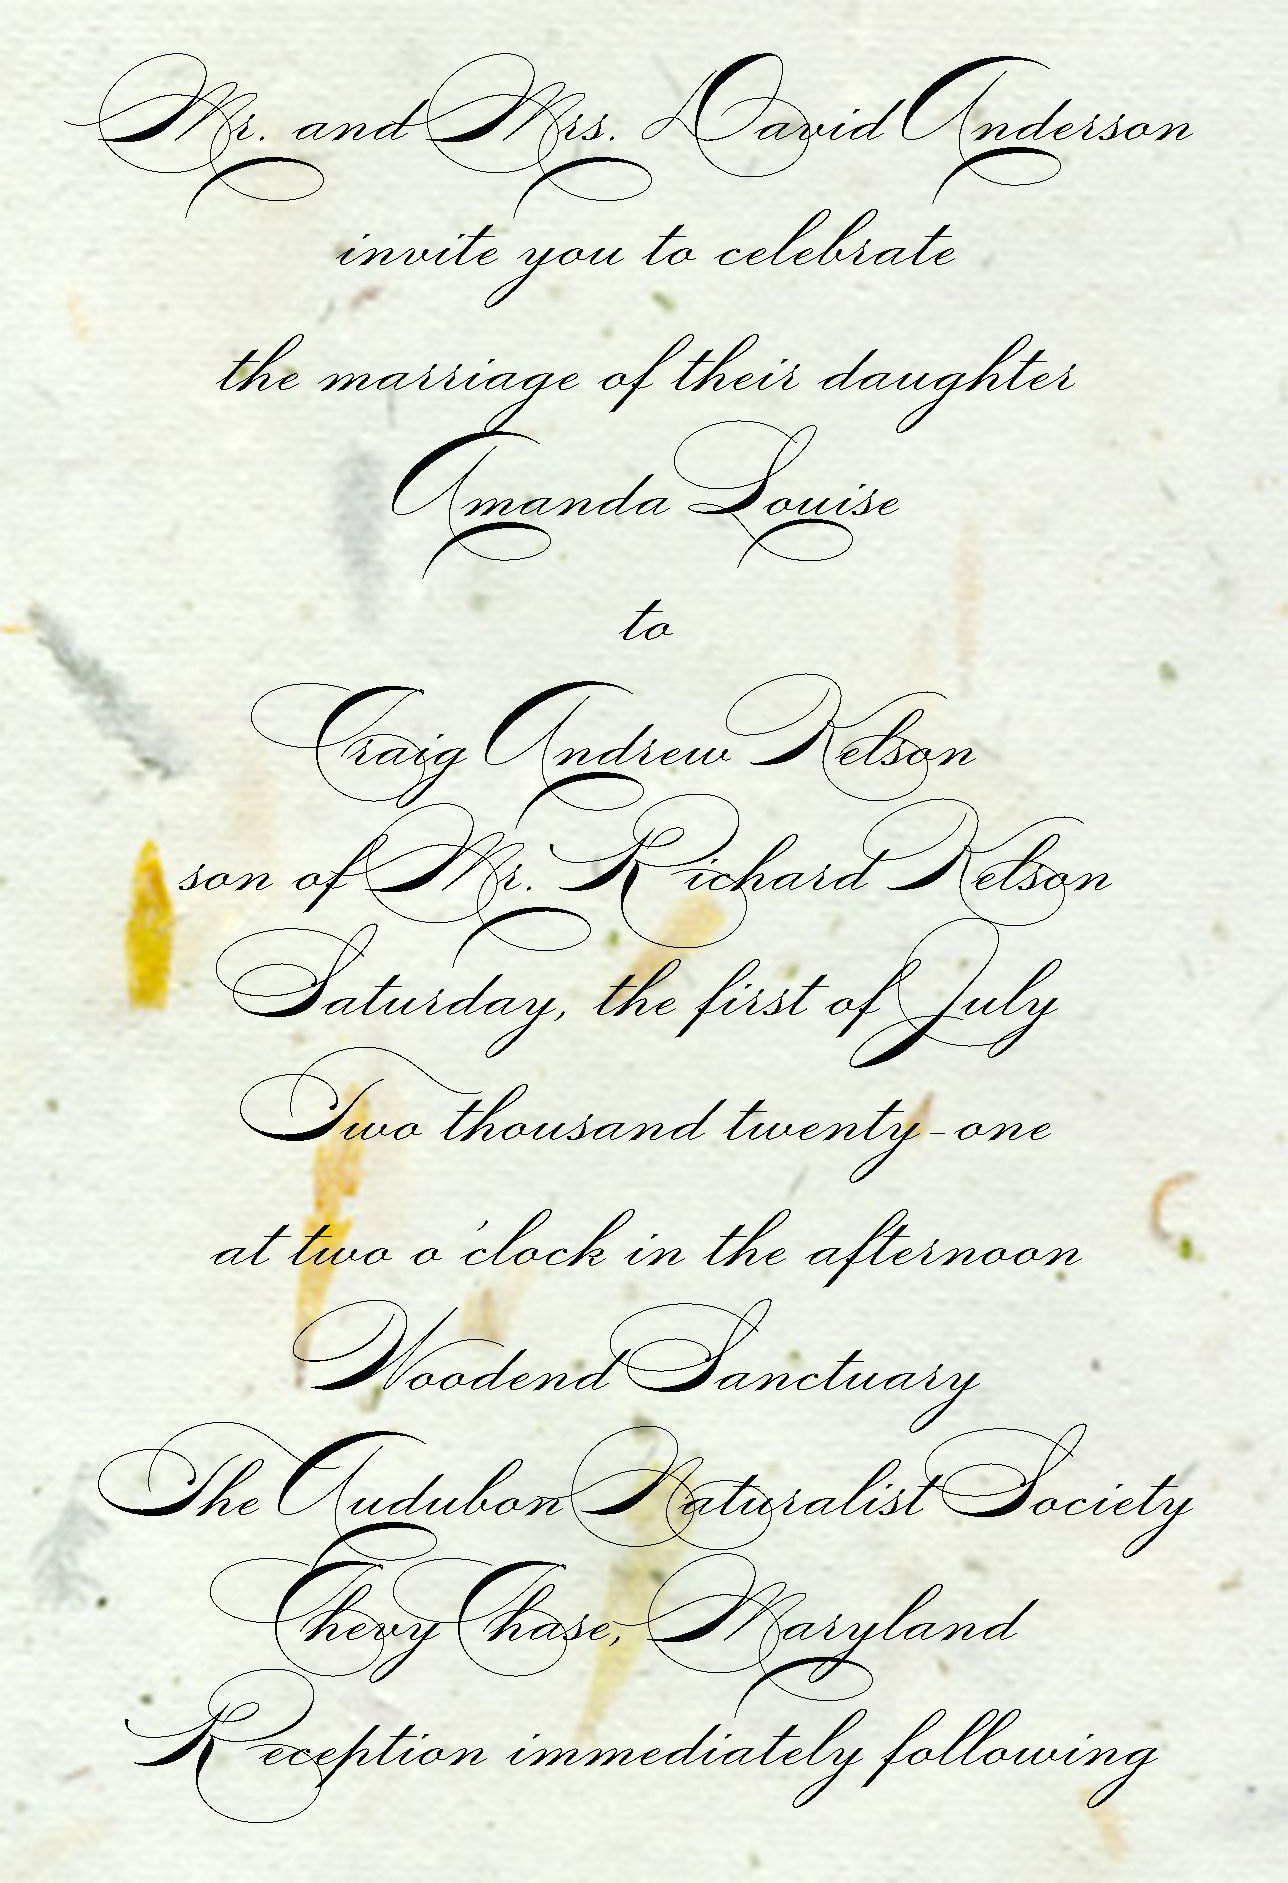 Mr. and Mrs. David Anderson
invite you to celebrate
the marriage of their daughter
Amanda Louise
to
Craig Andrew Kelson
son of Mr. Richard Kelson
Saturday, the first of July
Two thousand twenty-one
at two o'clock in the afternoon
Woodend Sanctuary
The Audubon Naturalist Society
Chevy Chase, Maryland
Reception immediately following